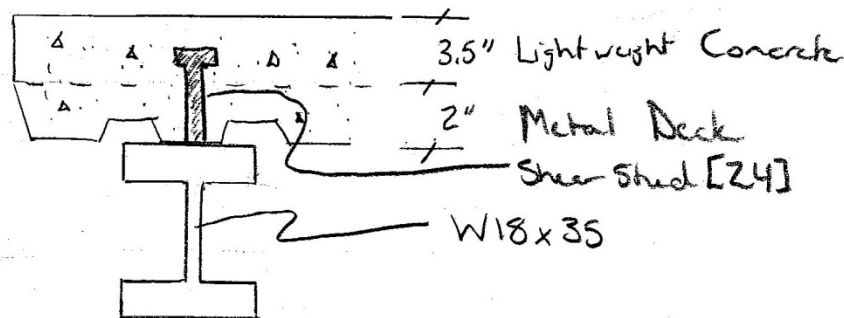 3.5" Lightweight Concrete
2" Metal Deck
Shear Stud [24]
W18x35